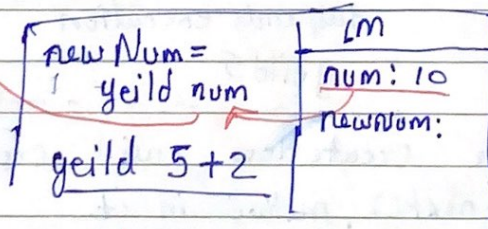 newNum =
yeild num
yeild 5+2
LM
num: 10
newnum: